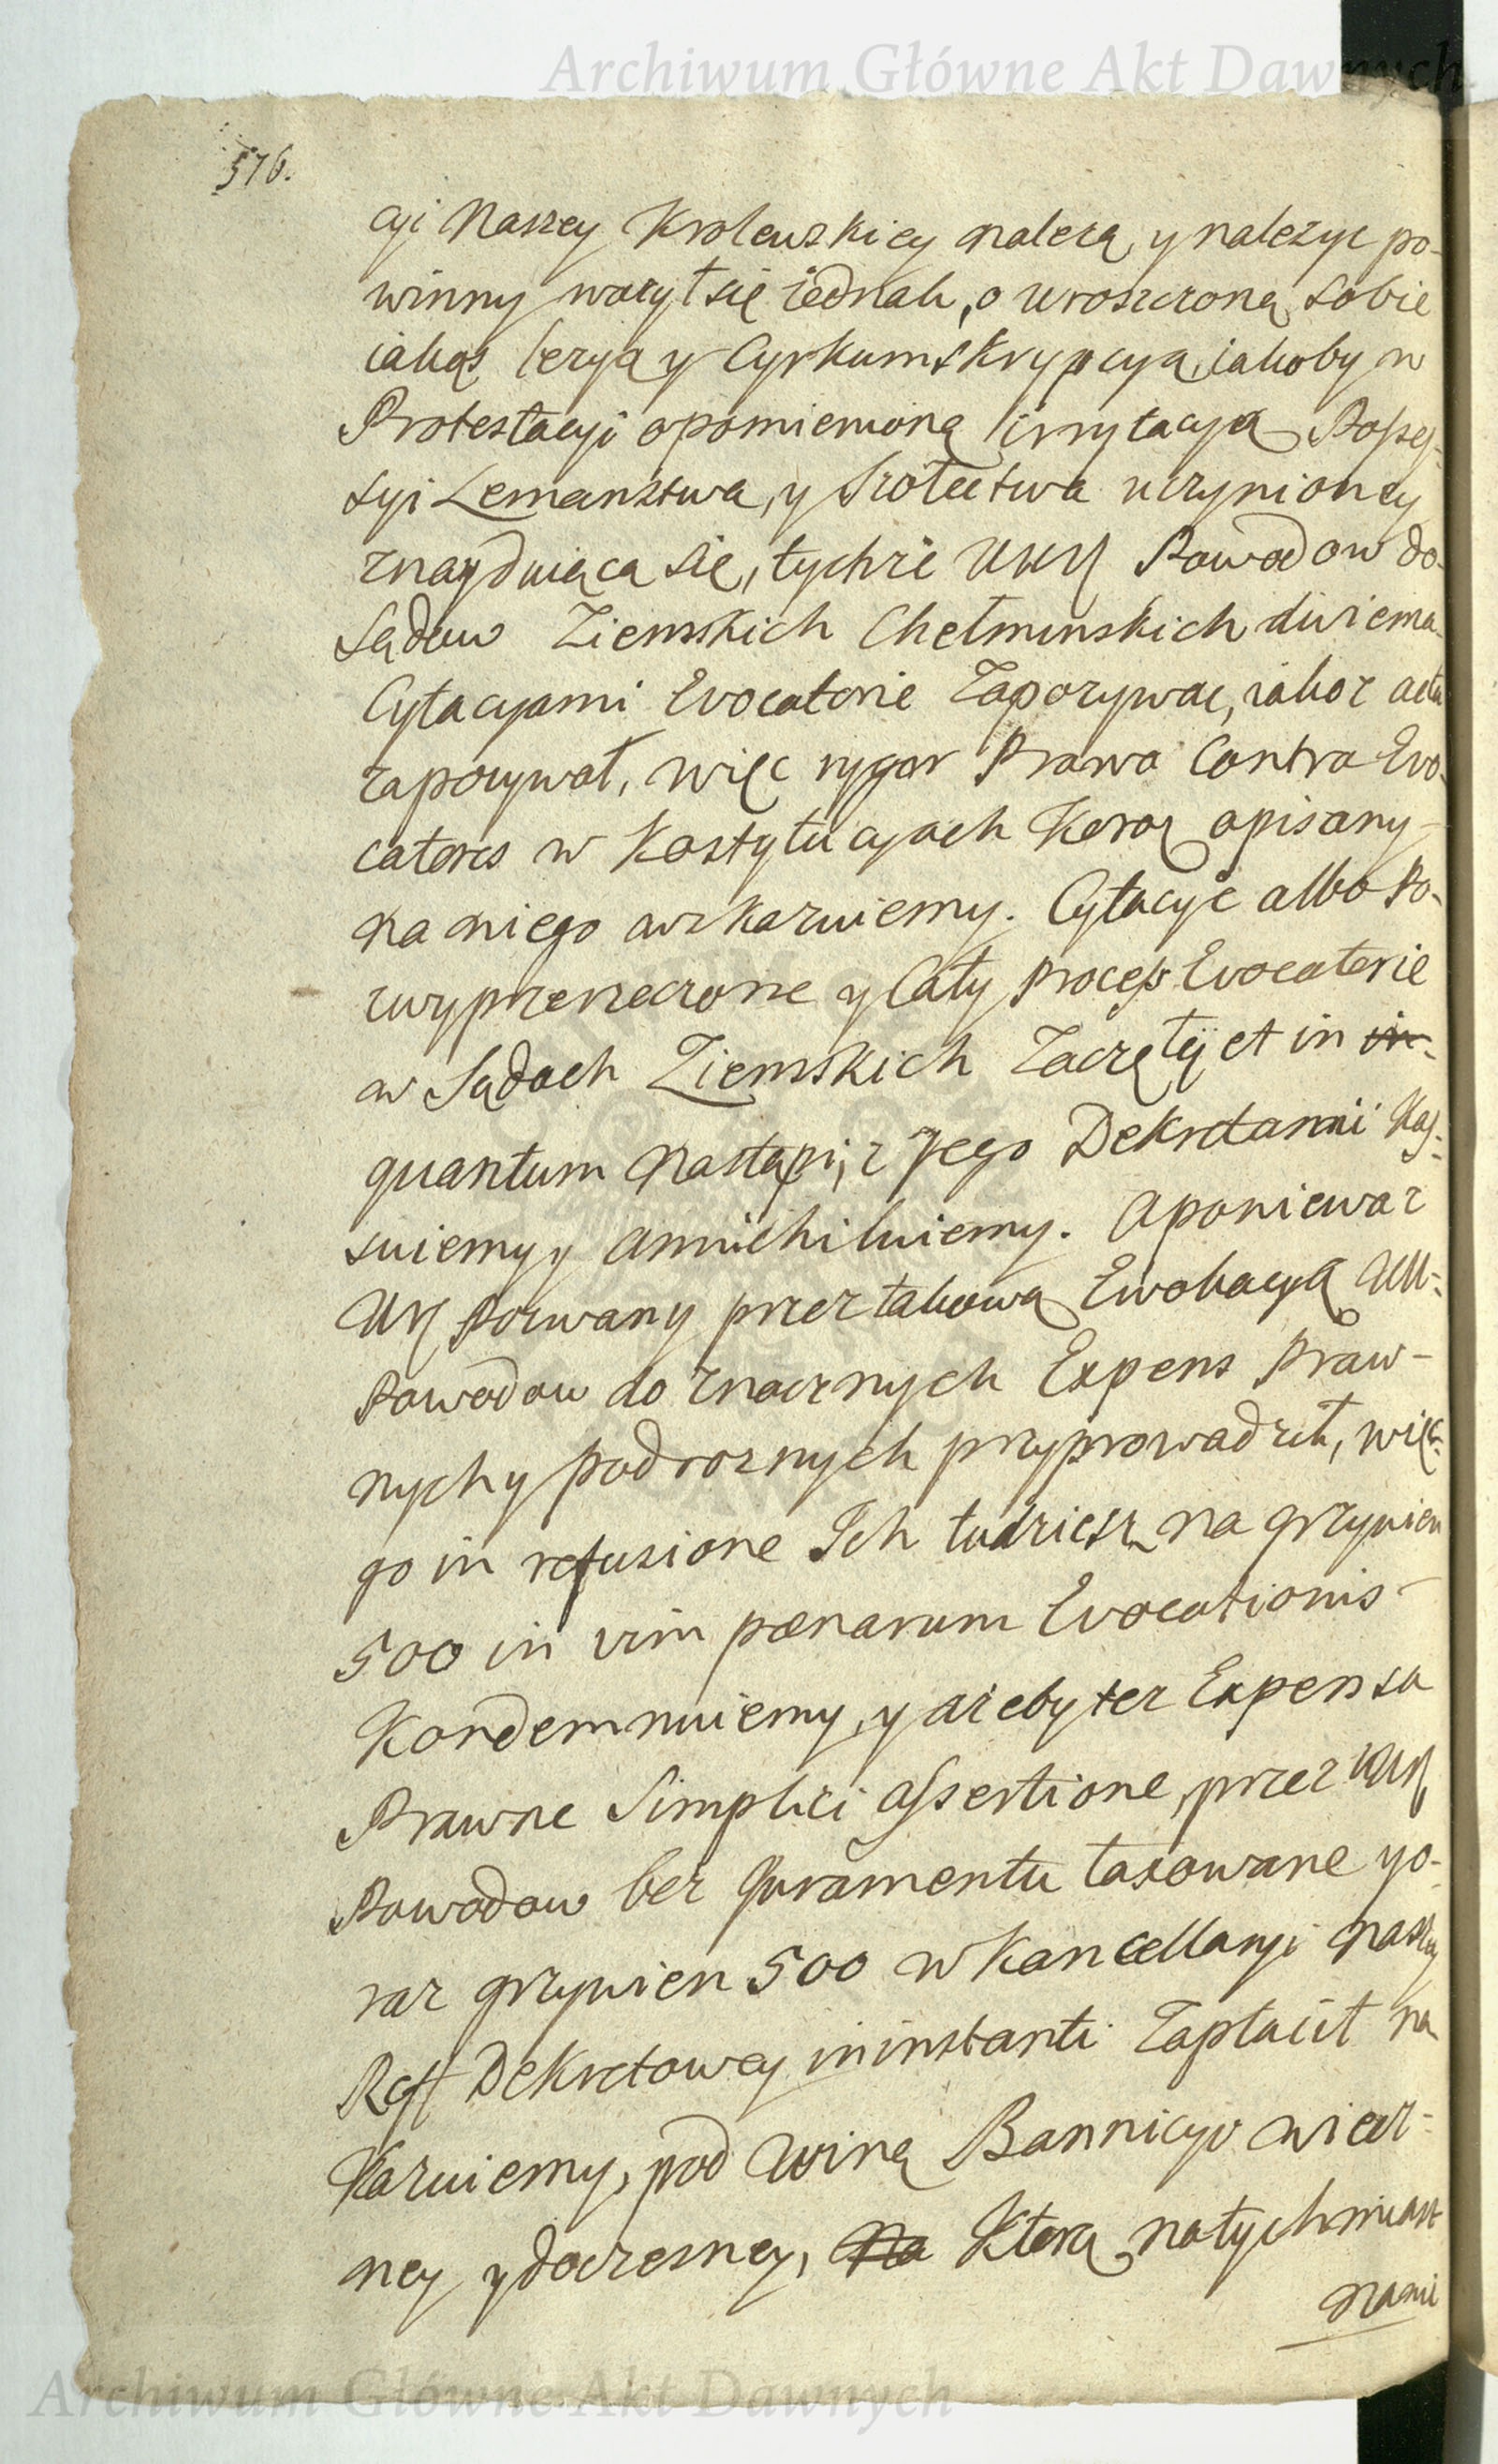 Archiwum Główne Akt Dawnych
576.
cyi Naszey Krolewskiey nalezą, y nalezyc po-
winny wazył się iednak, o uroszczoną sobie
iakąs lezyą y Cyrkumskrypcyą, iakoby w
Protestacyi opomienioną irrytacyą Possęs-
syi Lemanstwa, y Szołectwa uczynioney
znayduiąca się, tychze Powodow do
Sądow Ziemskich Chełminskich dwiema
Cytacyami Evocatorie Zapozywac, iakoz actu
zapozywał, więc rygor Prawa Contra Evo-
catores w Kostytucyach Koron opisany
na niego wskazuiemy. Cytacye albo Po-
zwyprzerzeczone y Cały Process Evocatorie
w Sądach Ziemskich Zaczęty et in in-
quantum nastąpi, z Jego Dekretami Kas-
suiemy y annichiluiemy. Aponiewaz
Ur Pozwany przez takową Ewokacyą UU-
Powodow do znacznych Expens Praw-
nych y podroznych przyprowadził, więc
go in refusione Ich tudziesz na grzywien
500 in vim pœnarum Evocationis
Kondemnuiemy, y azeby tez Expensa
Prawne Simplici assertione, przez
Powodow bez Juramentu taxowane yo-
raz grzywien 500 w Kancellaryi naszey
Dekretowey in instanti Zapłacił na
Kazuiemy, pod winą Bannicyi wiecz-
ney y doczesney, Na Ktorą natychmiast
nami
Archiwum Główne Akt Dawnych